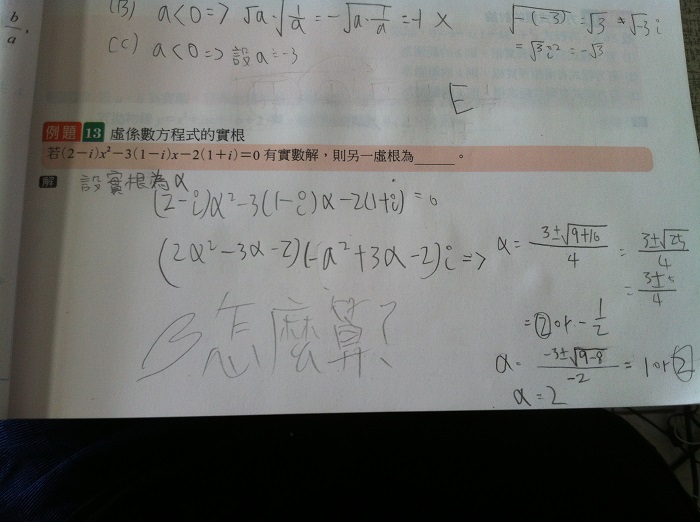 b/a,
(B) a<0 => √a·√(1/a) = -√(a·1/a) = -1 ×
(C) a<0 => 設a=-3
√-(-3) = √3 * √3 i
= √3 i² = -√3
E
例題 13 虛係數方程式的實根
若(2-i)x²-3(1-i)x-2(1+i)=0有實數解，則另一虛根為______。
解 設實根為α
(2-i)α²-3(1-i)α-2(1+i)=0
(2α²-3α-2)(-α²+3α-2)i =>
α = (3±√(9+16))/4 = (3±√25)/4
= (3±5)/4
= ② or -1/2
α = (-3±√(9-8))/-2 = 1 or ②
α = 2
β怎麼算?